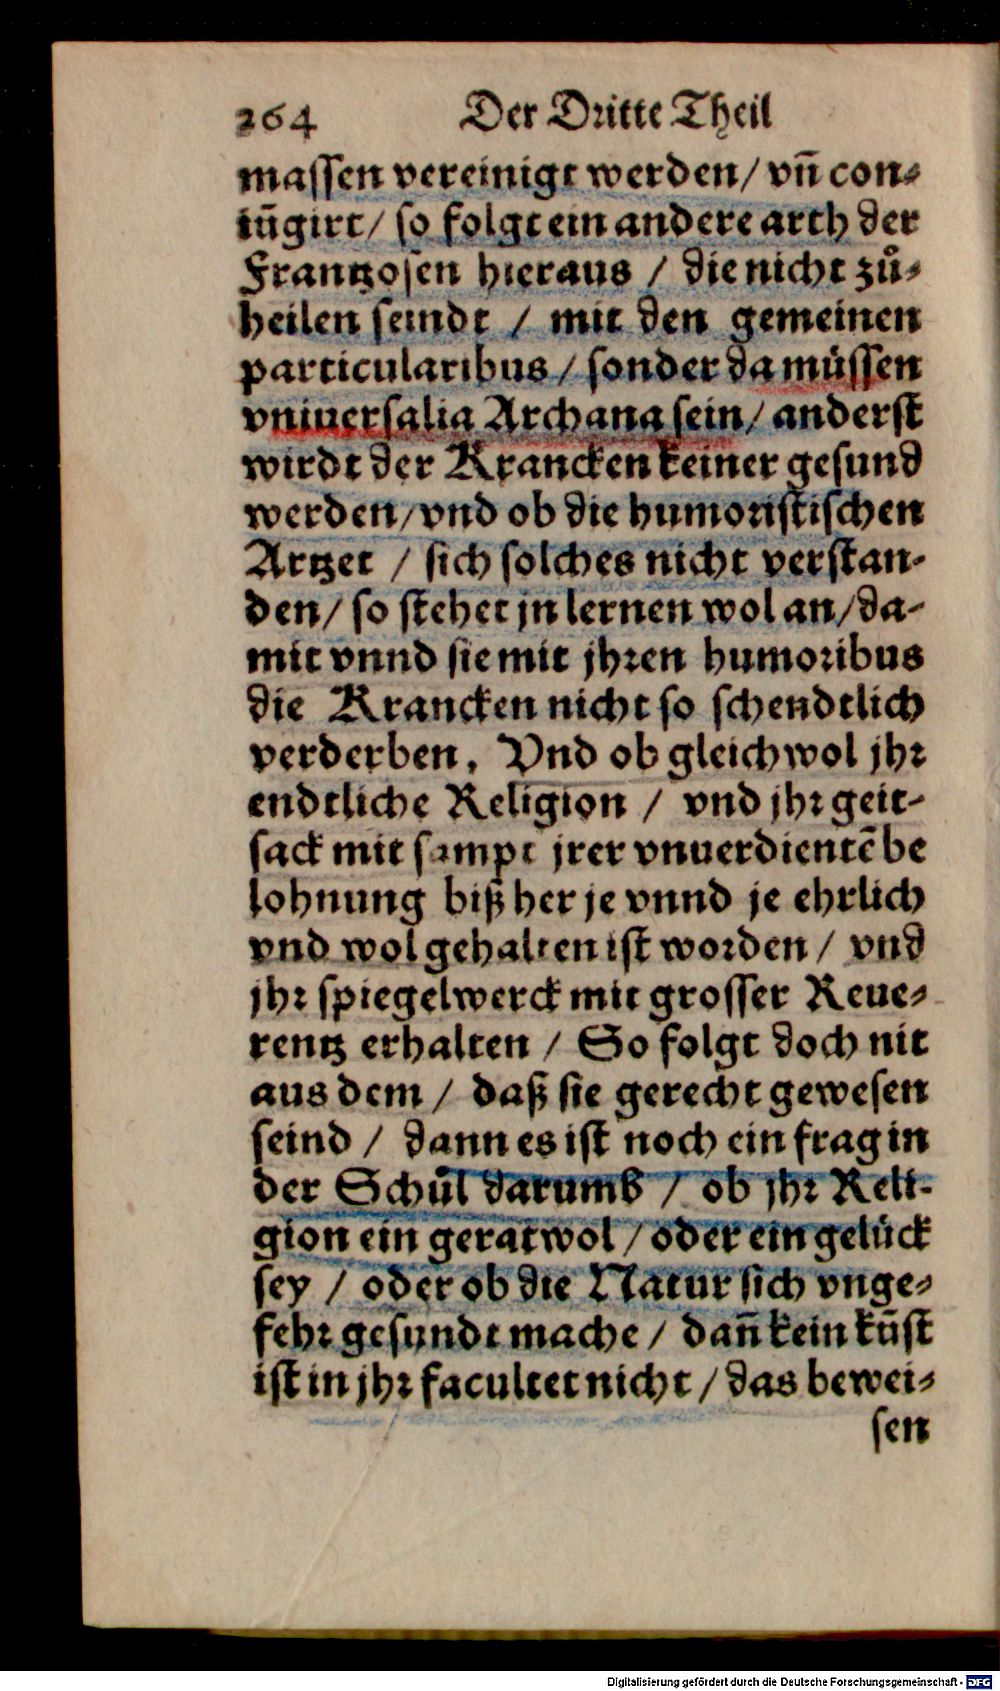 264 Der Dritte Theil
massen vereinigt werden/ vñ con-
iũgirt/ so folgt ein andere arth der
Frantzosen hieraus / die nicht zů-
heilen seindt / mit den gemeinen
particularibus / sonder da müssen
vniuersalia Archana sein/ anderst
wirdt der Krancken keiner gesund
werden/vnd ob die humoristischen
Artzet / sich solches nicht verstan-
den/ so stehet jn lernen wol an/da-
mit vnnd sie mit jhren humoribus
die Krancken nicht so schendtlich
verderben. Vnd ob gleichwol jhr
endtliche Religion / vnd jhr geit-
sack mit sampt jrer vnuerdientẽ be
lohnung biß her je vnnd je ehrlich
vnd wol gehalten ist worden / vnd
jhr spiegelwerck mit grosser Reue-
rentz erhalten / So folgt doch nit
aus dem / daß sie gerecht gewesen
seind / dann es ist noch ein frag in
der Schůl darumb / ob jhr Reli-
gion ein geratwol / oder ein gelück
sey / oder ob die Natur sich vnge-
fehr gesundt mache / dañ kein kũst
ist in jhr facultet nicht / das bewei-
sen
Digitalisierung gefördert durch die Deutsche Forschungsgemeinschaft - DFG